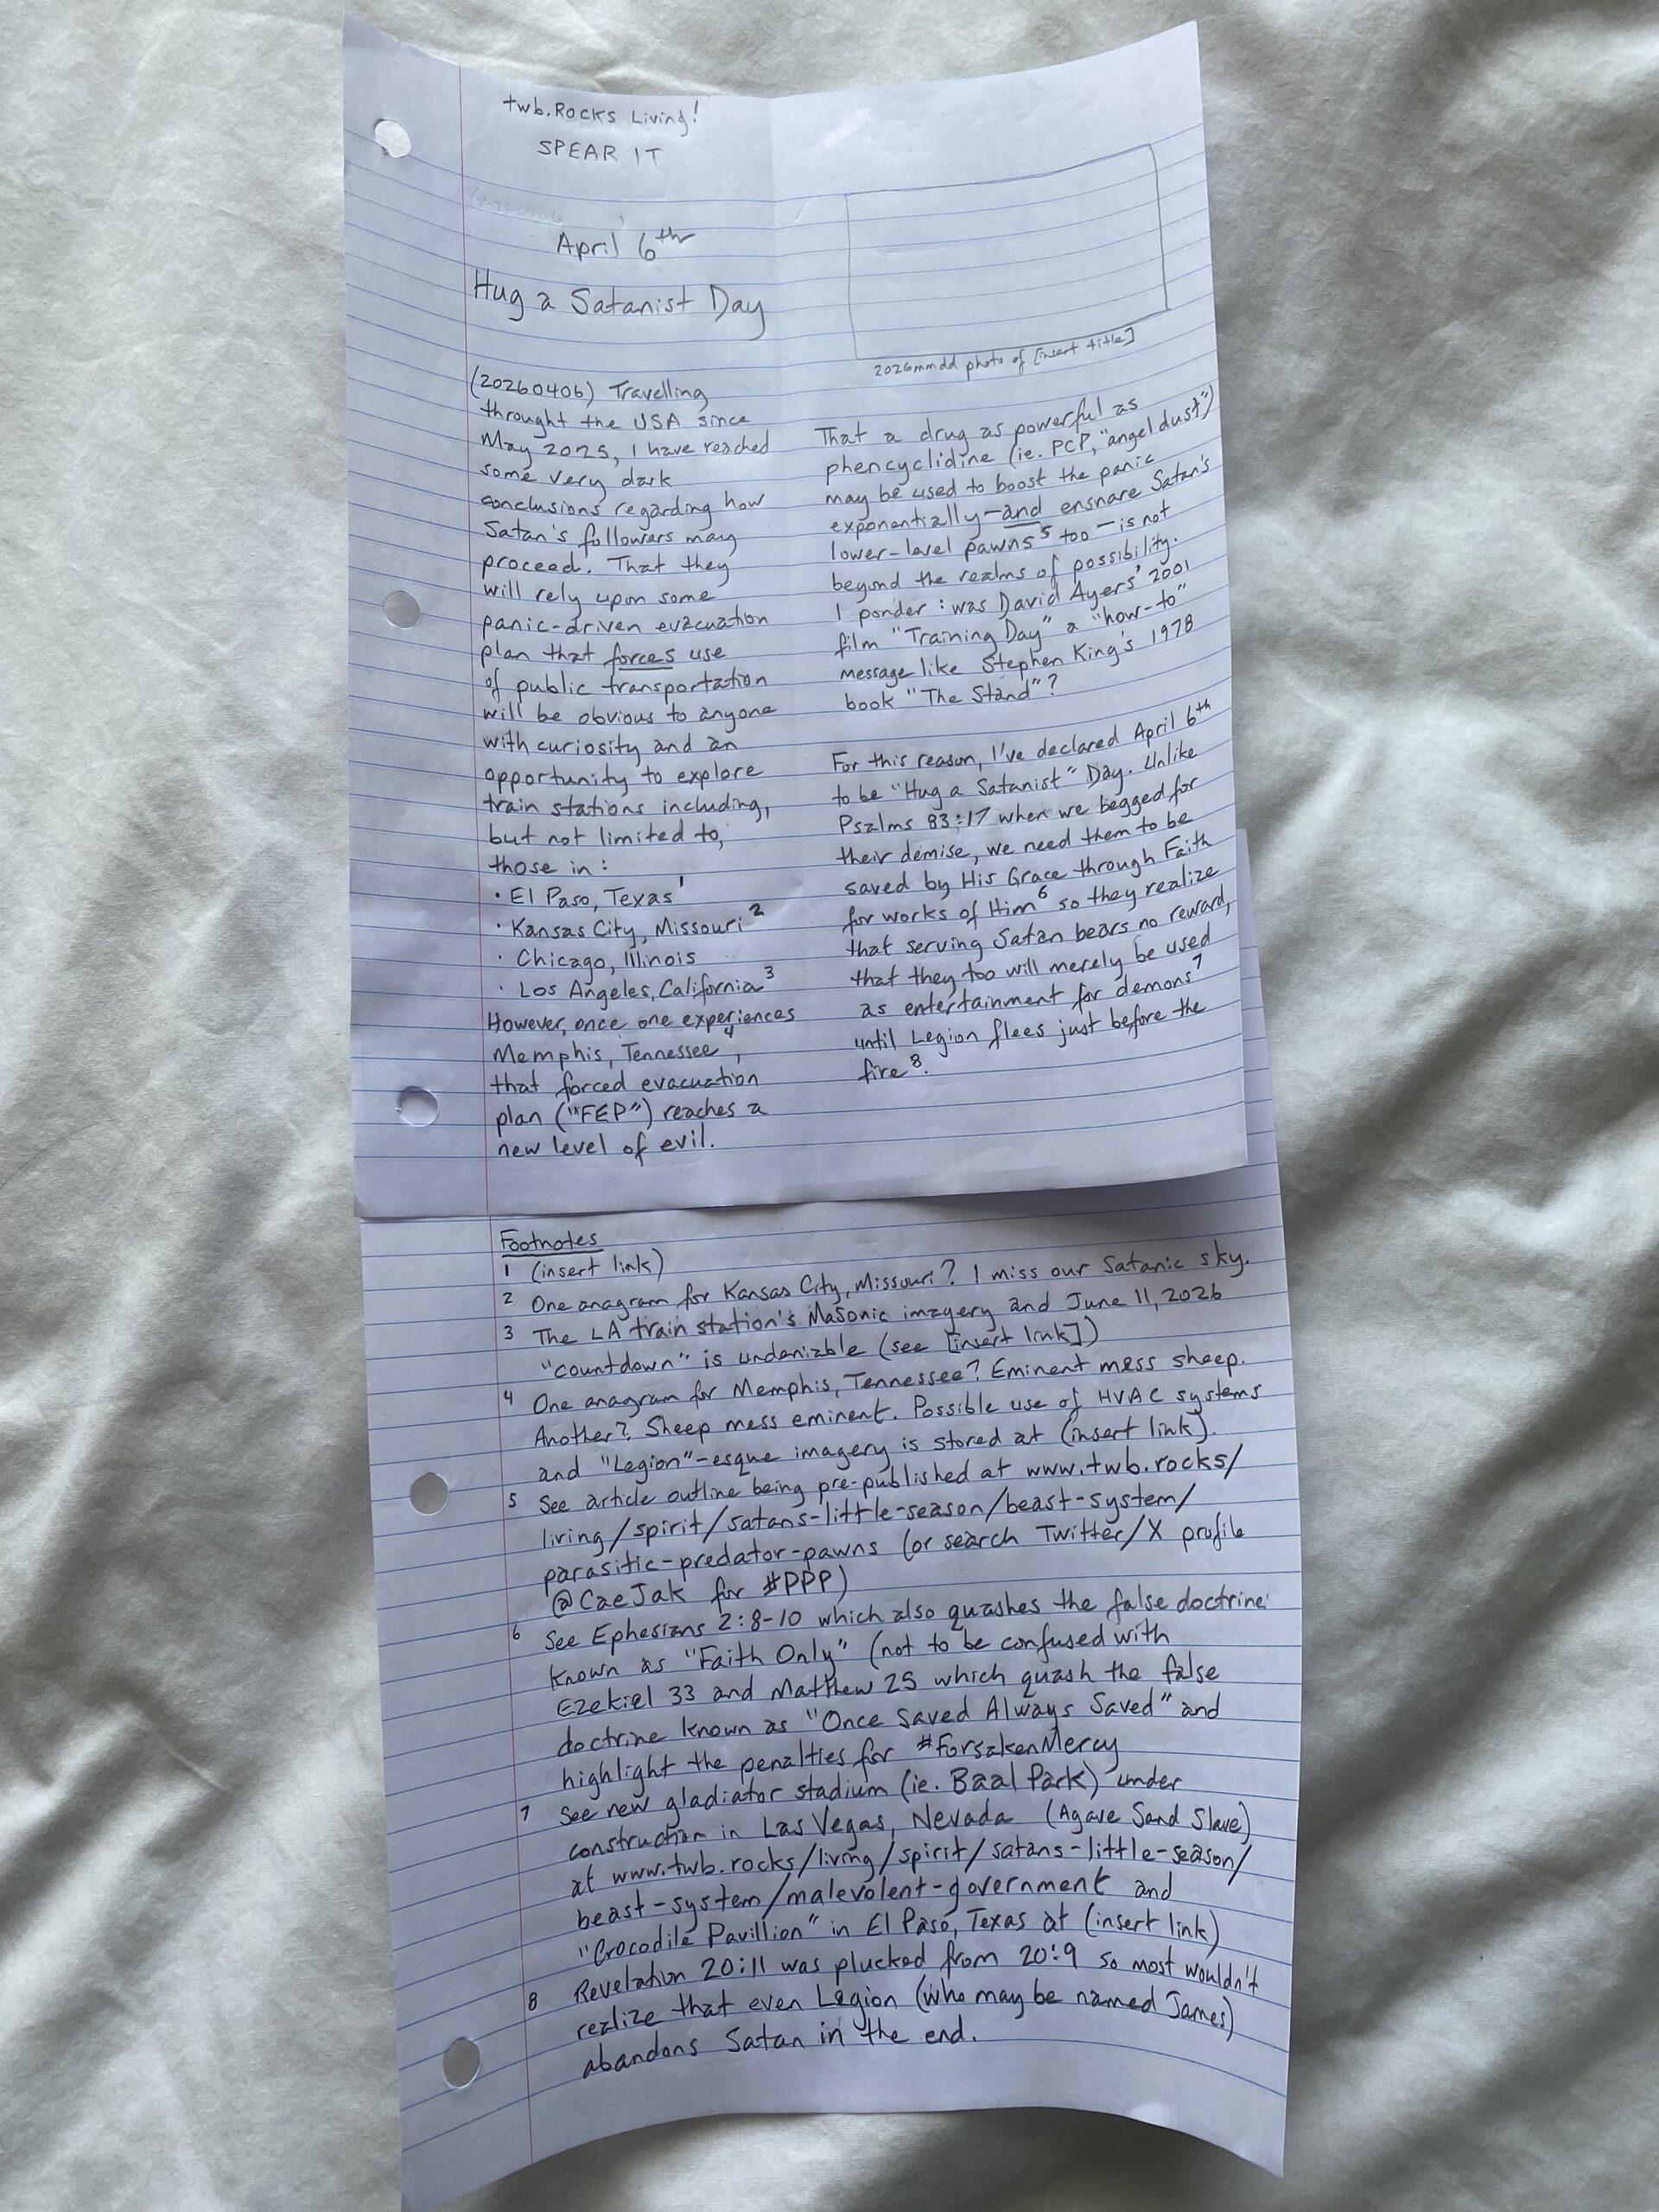 twb.Rocks Living!
SPEAR IT
April 6th
Hug a Satanist Day
(20260406) Travelling
throught the USA since
May 2025, I have reached
some very dark
conclusions regarding how
Satan's followers may
proceed. That they
will rely upon some
panic-driven evacuation
plan that forces use
of public transportation
will be obvious to anyone
with curiosity and an
opportunity to explore
train stations including,
but not limited to,
those in:
· El Paso, Texas 1
· Kansas City, Missouri 2
· Chicago, Illinois
· Los Angeles, California 3
However, once one experiences
Memphis, Tennessee 4,
that forced evacuation
plan ("FEP") reaches a
new level of evil.
2026mmdd photo of [insert title]
That a drug as powerful as
phencyclidine (ie. PCP, "angel dust")
may be used to boost the panic
exponentially—and ensnare Satan's
lower-level pawns 5 too—is not
beyond the realms of possibility.
I ponder: was David Ayers' 2001
film "Training Day" a "how-to"
message like Stephen King's 1978
book "The Stand"?
For this reason, I've declared April 6th
to be "Hug a Satanist" Day. Unlike
Psalms 83:17 when we begged for
their demise, we need them to be
saved by His Grace through Faith
for works of Him 6 so they realize
that serving Satan bears no reward,
that they too will merely be used
as entertainment for demons 7
until Legion flees just before the
fire 8.
Footnotes
1 (insert link)
2 One anagram for Kansas City, Missouri? I miss our Satanic sky.
3 The LA train station's Masonic imagery and June 11, 2026
"countdown" is undeniable (see [insert link])
4 One anagram for Memphis, Tennessee? Eminent mess sheep.
Another? Sheep mess eminent. Possible use of HVAC systems
and "Legion"-esque imagery is stored at (insert link).
5 See article outline being pre-published at www.twb.rocks/
living/spirit/satans-little-season/beast-system/
parasitic-predator-pawns (or search Twitter/X profile
@CaeJak for #PPP)
6 See Ephesians 2:8-10 which also quashes the false doctrine
known as "Faith Only" (not to be confused with
Ezekiel 33 and Matthew 25 which quash the false
doctrine known as "Once Saved Always Saved" and
highlight the penalties for #ForsakenMercy
7 See new gladiator stadium (ie. Baal Park) under
construction in Las Vegas, Nevada (Agave Sand Slave)
at www.twb.rocks/living/spirit/satans-little-season/
beast-system/malevolent-government and
"Crocodile Pavillion" in El Paso, Texas at (insert link)
8 Revelation 20:11 was plucked from 20:9 so most wouldn't
realize that even Legion (who may be named James)
abandons Satan in the end.